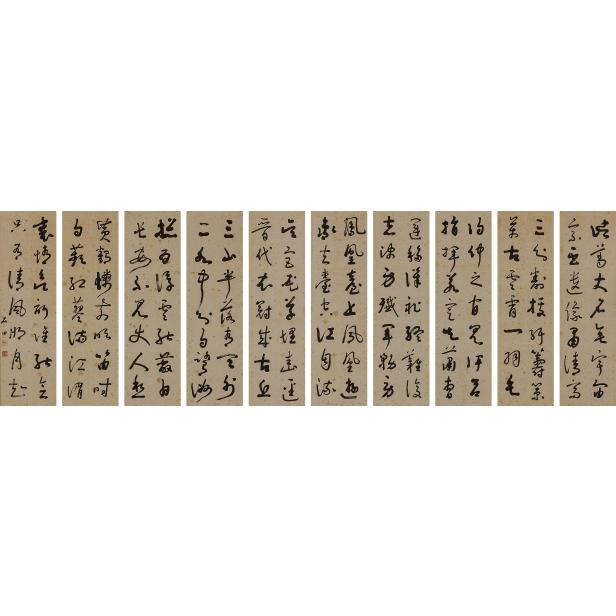 諸葛大名垂宇宙
宗臣遺像肅清高
三分割據紆籌策
萬古雲霄一羽毛
伯仲之間見伊呂
指揮若定失蕭曹
運移漢祚終難復
志決身殲軍務勞
鳳凰臺上鳳凰遊
鳳去臺空江自流
吳宮花草埋幽徑
晉代衣冠成古丘
三山半落青天外
二水中分白鷺洲
總為浮雲能蔽日
長安不見使人愁
黃鶴樓前吹笛時
白蘋紅蓼滿江湄
衷情欲訴誰能會
只有清風明月知